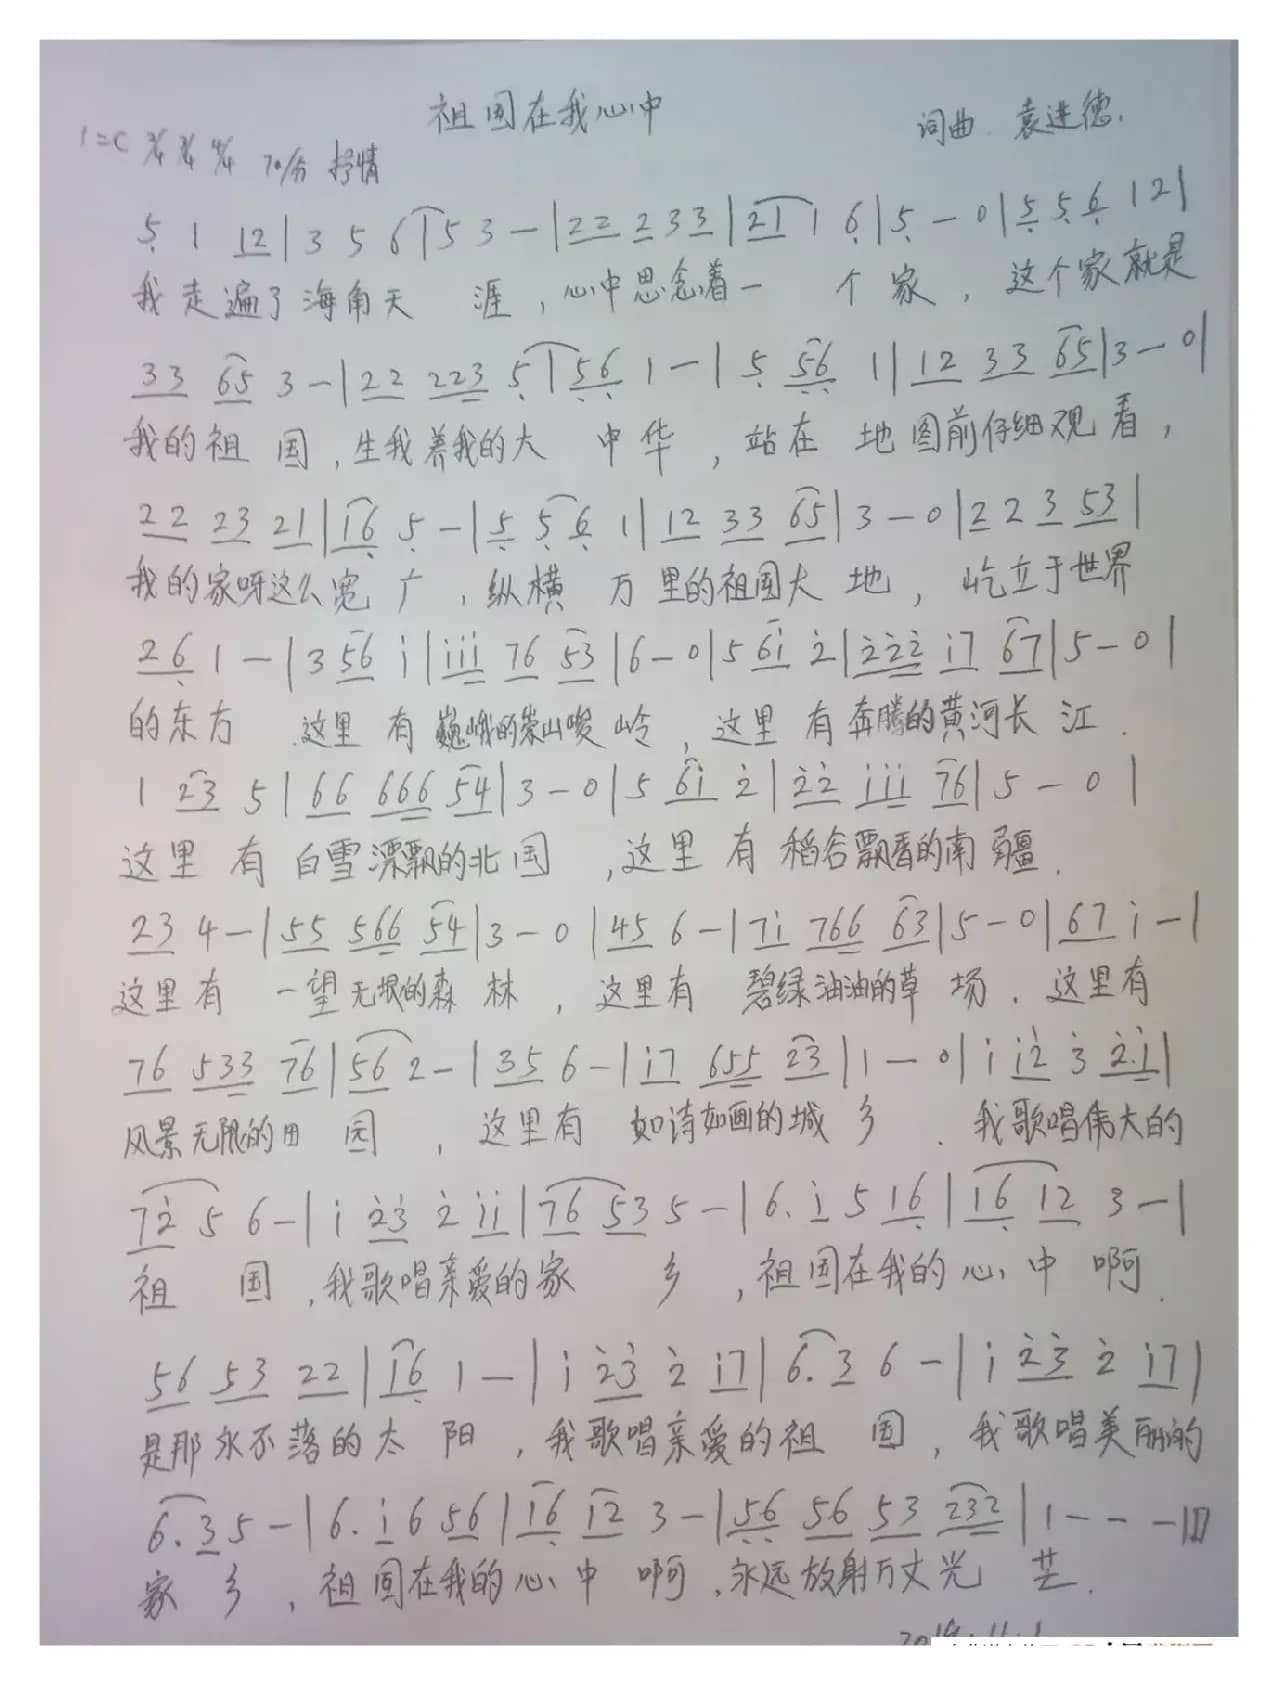 祖国在我心中
词曲 袁进德.
1=C 2/4 3/4 4/4 70/分 抒情
5 1 12|3 5 6|5 3 -|22 2 33|21 1 6|5 - 0|5 5 6 12|
我走遍了海角天涯,心中思念着一个家,这个家就是
33 65 3-|22 223 5|56 1-|5 56 1|12 33 65|3-0|
我的祖国,生我养我的大中华,站在地图前仔细观看,
22 23 21|16 5-|5 5 6 1|12 33 65|3-0|2 2 3 53|
我的家呀这么宽广,纵横万里的祖国大地,屹立于世界
26 1-|3 56 i|iii 76 53|6-0|5 6i 2|222 i7 67|5-0|
的东方.这里有巍峨的崇山峻岭,这里有奔腾的黄河长江.
1 23 5|66 666 54|3-0|5 6i 2|22 iii 76|5-0|
这里有白雪漂飘的北国,这里有稻谷飘香的南疆.
23 4-|55 566 54|3-0|45 6-|7i 766 63|5-0|67 i-|
这里有一望无垠的森林,这里有碧绿油油的草场.这里有
76 533 76|56 2-|35 6-|i7 655 23|1-0|i i2 3 2.i|
风景无限的田园,这里有如诗如画的城乡.我歌唱伟大的
72 5 6-|i 23 2 ii|76 53 5-|6. i 5 16|16 12 3-|
祖国,我歌唱亲爱的家乡,祖国在我的心中啊.
56 53 22|16 1-|i 23 2 i7|6. 3 6-|i 23 2 i7|
是那永不落的太阳,我歌唱亲爱的祖国,我歌唱美丽的
6. 3 5-|6. i 6 56|16 12 3-|56 56 53 232|1---||
家乡,祖国在我的心中啊,永远放射万丈光芒.
2019.11.1